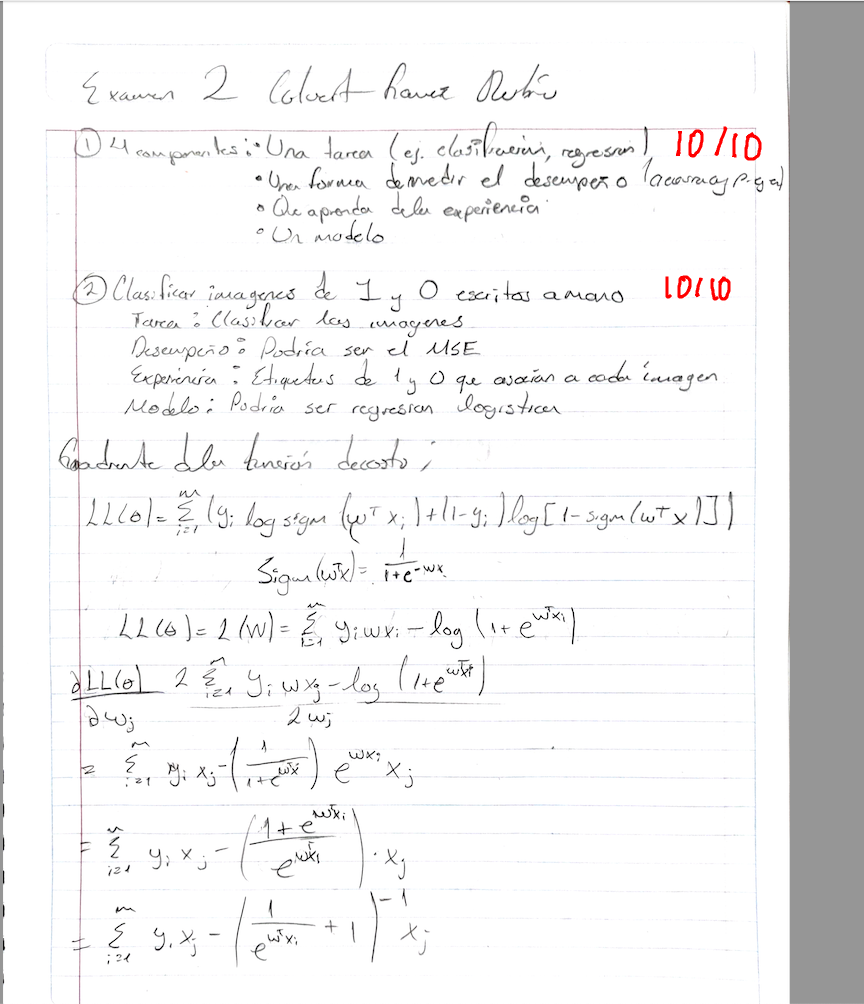 Examen 2 Calvert Chavez Rubén
① 4 componentes: • Una tarea (ej. clasificación, regresion) 10/10
• Una forma de medir el desempeño (accuracy p.ej)
• Que aprenda de la experiencia
• Un modelo
② Clasificar imagenes de 1 y 0 escritos a mano 10/10
Tarea: Clasificar las imagenes
Desempeño: Podría ser el MSE
Experiencia: Etiquetas de 1 y 0 que asocian a cada imagen
Modelo: Podría ser regresion logistica
Gradiente de la función de costo;
LL(θ) = Σ_{i=1}^{m} (y_i log sigm (w^T x_i) + (1-y_i) log[1-sigm(w^T x)])
Sigm(w^T x) = 1/(1+e^{-wx})
LL(θ) = L(W) = Σ_{i=1}^{m} y_i w x_i - log (1+e^{w^T x_i})
∂LL(θ)/∂w_j = ∂ Σ_{i=1}^{m} y_i w x_j - log (1+e^{w^T x_i}) / ∂w_j
= Σ_{i=1}^{m} y_i x_j - (1/(1+e^{w^T x})) e^{w x_i} x_j
= Σ_{i=1}^{m} y_i x_j - ((1+e^{w^T x_i})/(e^{w^T x_i})) · x_j
= Σ_{i=1}^{m} y_i x_j - (1/(e^{w^T x_i}) + 1)^{-1} x_j